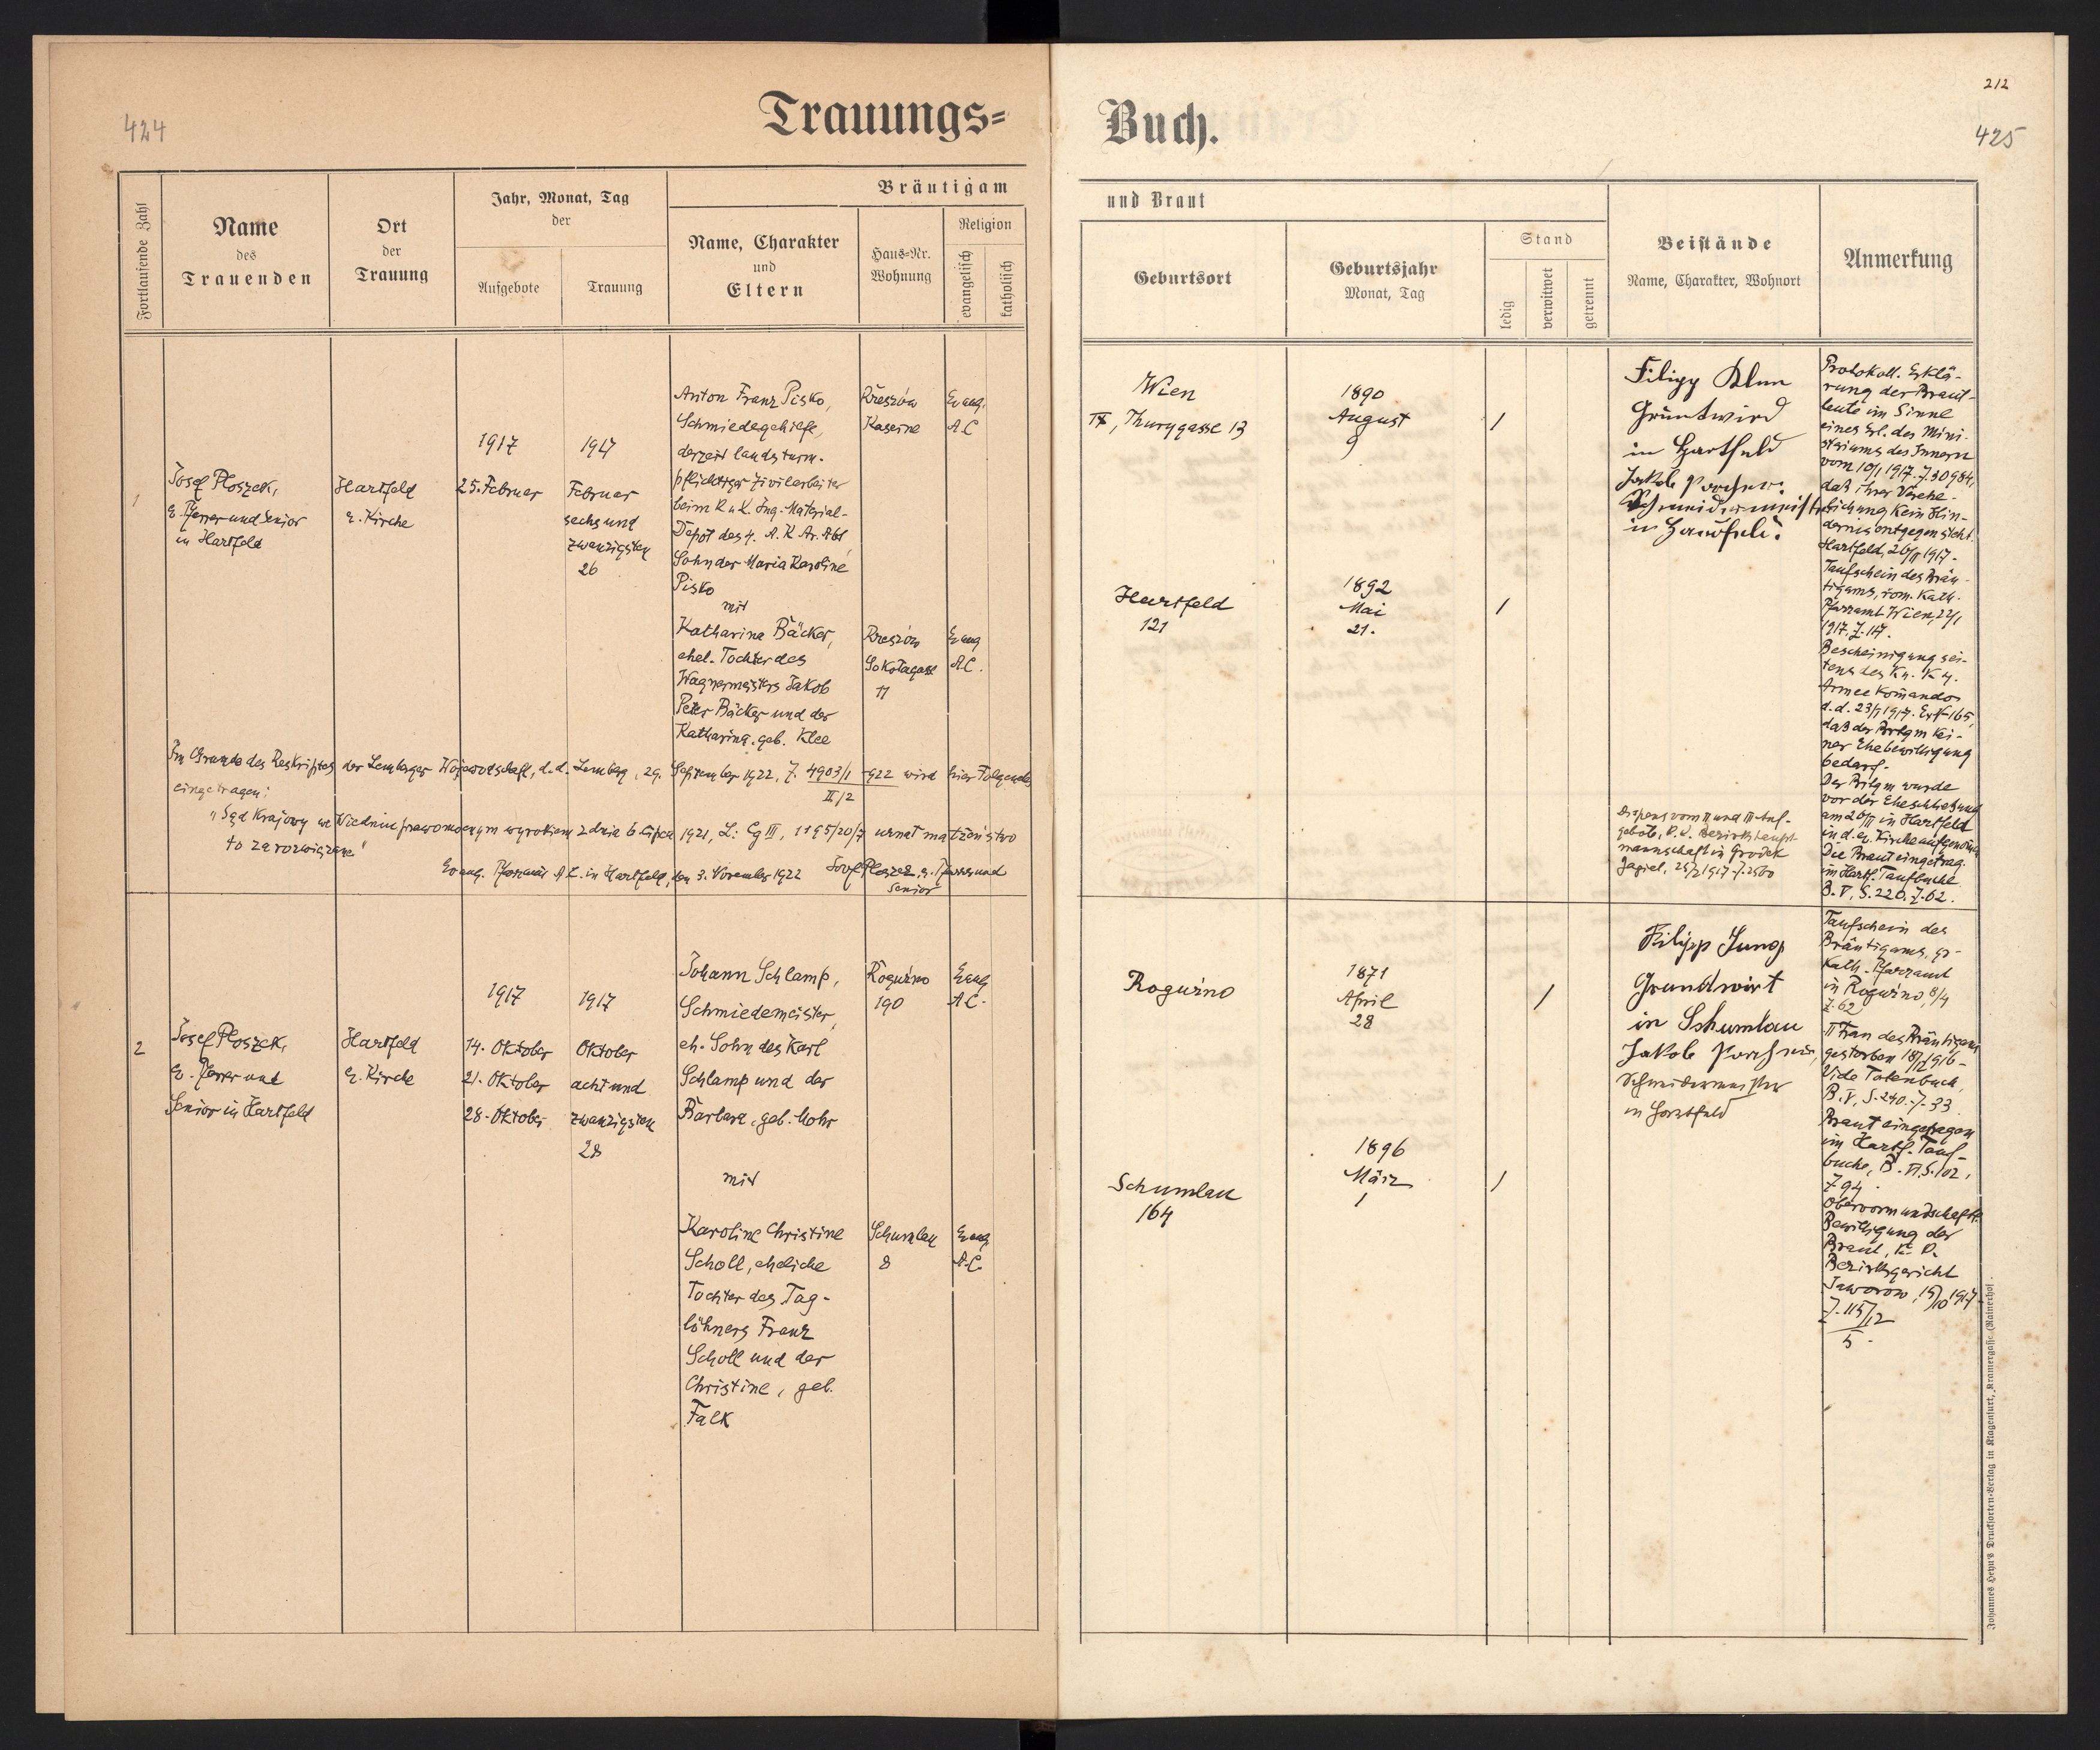 424
Trauungs=
Fortlaufende Zahl
Name
des
Trauenden
Ort
der
Trauung
Jahr, Monat, Tag
der
Aufgebote
Trauung
Bräutigam
Name, Charakter
und
Eltern
Haus=Nr.
Wohnung
Religion
evangelisch
katholisch
1
Josef Ploszek,
e. Pfarrer und Senior
in Hartfeld
Hartfeld
e. Kirche
1917
25. Februar
1917
Februar
sechs und
zwanzigsten
26
Anton Franz Pisko,
Schmiedegehilfe,
derzeit landsturm-
pflichtiger Zivilarbeiter
beim K. u. K. Ing. Material-
Depot des 4. A. K. Ar. Abt
Sohn der Maria Karoline
Pisko
mit
Katharina Bäcker,
ehel. Tochter des
Wagnermeisters Jakob
Peter Bäcker und der
Katharina, geb. Klee
Rzeszów
Kaserne
Evang.
A.C
Rzeszów
Sokołagasse
11
Evang
A.C.
Im Grunde des Reskriptes der Lemberger Wojewodschaft, d.d. Lemberg, 29. September 1922, Z. 4903/1 922 wird hier Folgendes
II/2
eingetragen:
"Sąd Krajowy we Wiedniu prawomocnym wyrokiem z dnia 6 lipca 1921, L: Cg III, 1195/20/7 uznał małżeństwo
to za rozwiązane"
Evang. Pfarramt A.C. in Hartfeld, den 3. November 1922 Josef Ploszek, e. Pfarrer und
Senior
2
Josef Ploszek,
e. Pfarrer und
Senior in Hartfeld
Hartfeld
e. Kirche
1917
14. Oktober
21. Oktober
28. Oktober
1917
Oktober
acht und
zwanzigsten
28
Johann Schlamp,
Schmiedemeister,
eh. Sohn des Karl
Schlamp und der
Barbara, geb. Mohr
mit
Karoline Christine
Scholl, eheliche
Tochter des Tag-
löhners Franz
Scholl und der
Christine, geb.
Falk
Roguźno
190
Evang
A.C.
Schumlau
8
Evang
A.C.
212
425
Buch.
und Braut
Geburtsort
Geburtsjahr
Monat, Tag
Stand
ledig
verwitwet
getrennt
Beistände
Name, Charakter, Wohnort
Anmerkung
Wien
IX, Thurygasse 13
1890
August
9
1
Hartfeld
121
1892
Mai
21.
1
Filipp
Grundwird
in Hartfeld
Jakob
Schneidermeister
in Hartfeld.
Dispens vom II und III Auf-
gebote, K.K. Bezirkshaupt-
mannschaft in Grodek
Jagiel, 25/2 1917. Z. 2560
Protokoll. Erklä-
rung der Braut-
leute im Sinne
eines Erl. des Mini-
steriums des Innern
vom 10/1 1917. Z. 30984,
daß ihrer Vereheli-
chung kein Hin-
dernis entgegensteht.
Hartfeld, 20/II 1917.
Taufschein des Bräu-
tigams, röm. Kath.
Pfarramt Wien, 22/1
1917, Z. 117.
Bescheinigung sei-
tens des K. u. K. 4.
Armee Komandos
d.d. 23/1 1917. Ex N 165,
daß der Brtgm kei-
ner Ehebewilligung
bedarf.
Der Brtgm wurde
vor der Eheschließung
am 20/II in Hartfeld
in d. ev. Kirche aufgenommen
Die Braut eingetrag.
im Hartf. Taufbuche
B. V, S. 220. Z. 62.
Roguźno
1871
April
28
1
Schumlau
164
1896
März
1
1
Filipp Jung
Grundwirt
in Schumlau
Jakob
Schneidermeister
in Hartfeld
Taufschein des
Bräutigams, gr-
Kath. Pfarramt
in Roguźno, 8/4
Z. 62
II Frau des Bräutigams
gestorben 18/12 1916 -
Vide Totenbuch,
B. V, S. 240. Z. 33.
Braut eingetragen
im Hartf. Tauf-
buche, B. VI S. 102,
Z 94.
Obervormundschaftl.
Bewilligung der
Braut, K. K.
Bezirksgericht
Jaworow, 15/10 1917.
Z. 115/12
5.
Johannes Heyn's Drucksorten-Verlag in Klagenfurt, Kramergasse (Rainerhof).